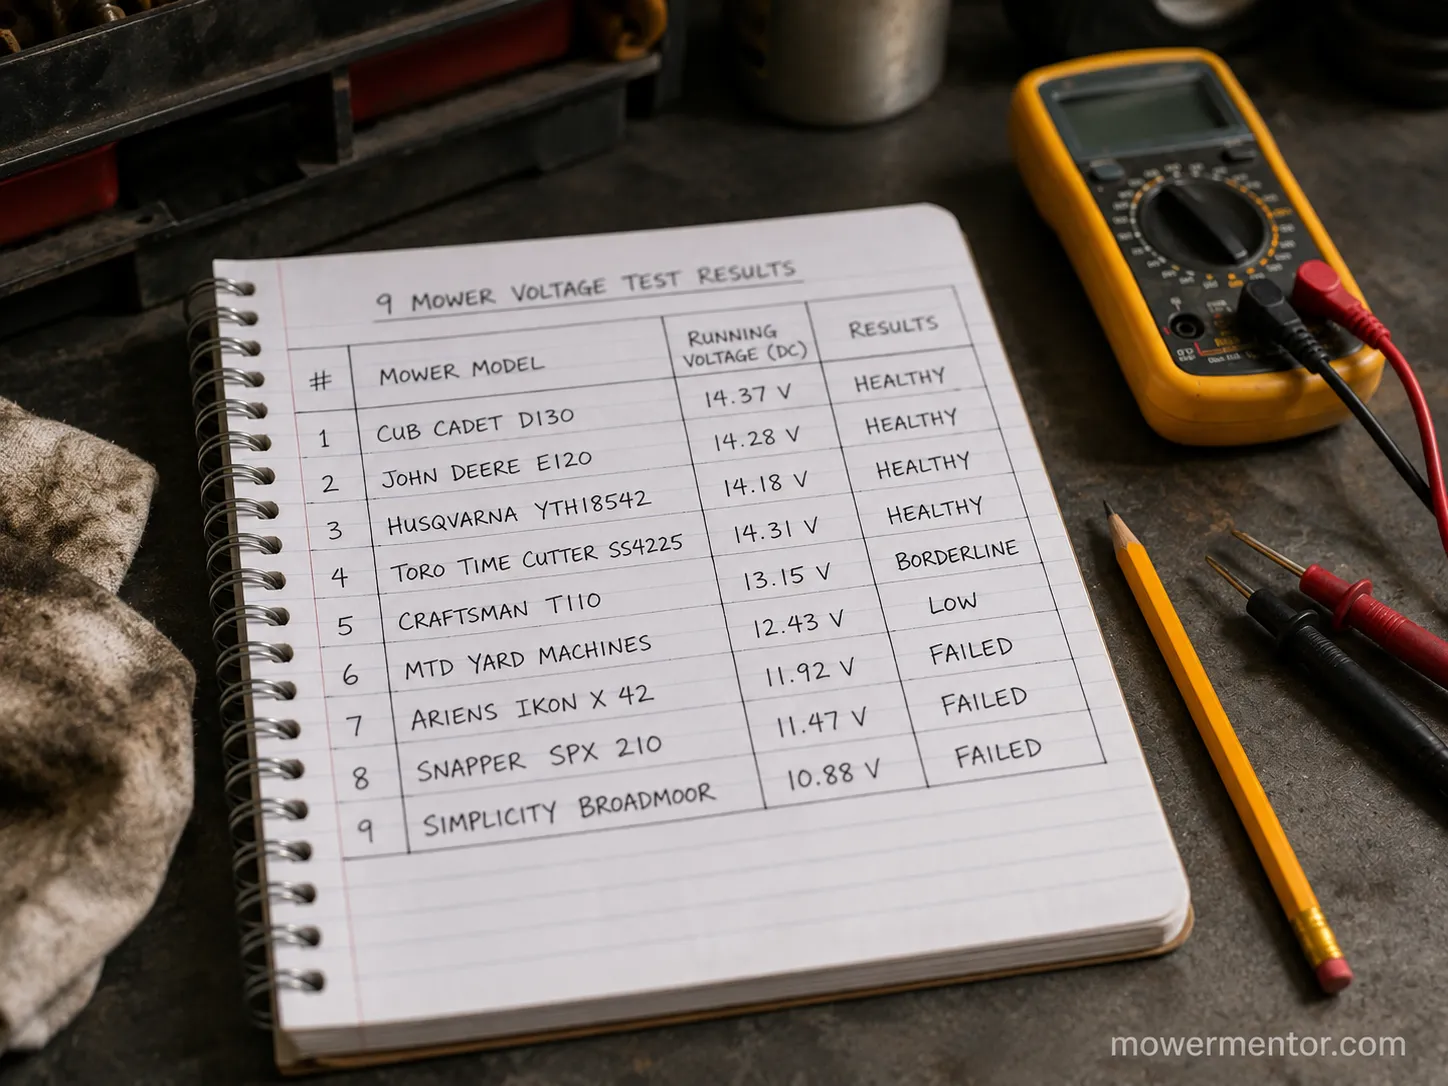 9 MOWER VOLTAGE TEST RESULTS
# MOWER MODEL RUNNING VOLTAGE (DC) RESULTS
1 CUB CADET D130 14.37 V HEALTHY
2 JOHN DEERE E120 14.28 V HEALTHY
3 HUSQVARNA YTH18542 14.18 V HEALTHY
4 TORO TIME CUTTER SS4225 14.31 V HEALTHY
5 CRAFTSMAN T110 13.15 V BORDERLINE
6 MTD YARD MACHINES 12.43 V LOW
7 ARIENS IKON X 42 11.92 V FAILED
8 SNAPPER SPX 210 11.47 V FAILED
9 SIMPLICITY BROADMOOR 10.88 V FAILED
mowermentor.com